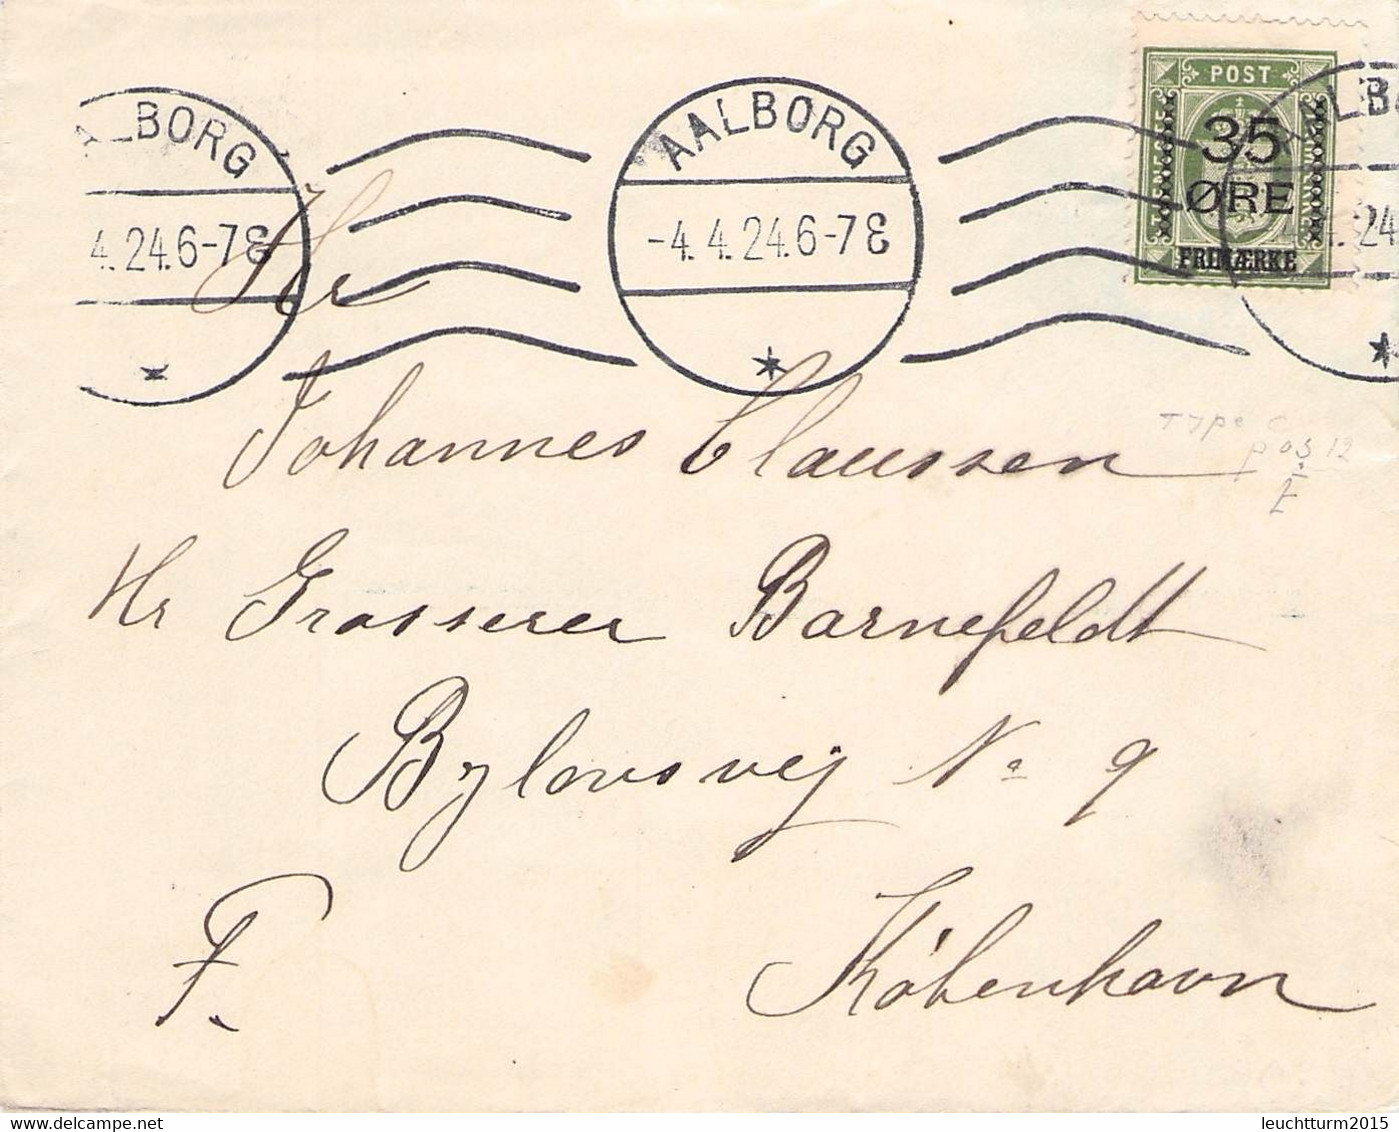 POST
35
ØRE
FRIMÆRKE
TJENESTE
ALBORG
4.24.6-7E
AALBORG
-4.4.24.6-7E
ALB
4.24
Hr
Johannes Claussen
Type C
pos 12
Hr Grosserer Barnefeldt
Bylowsvej No 9
F.
København
leuchtturm2015